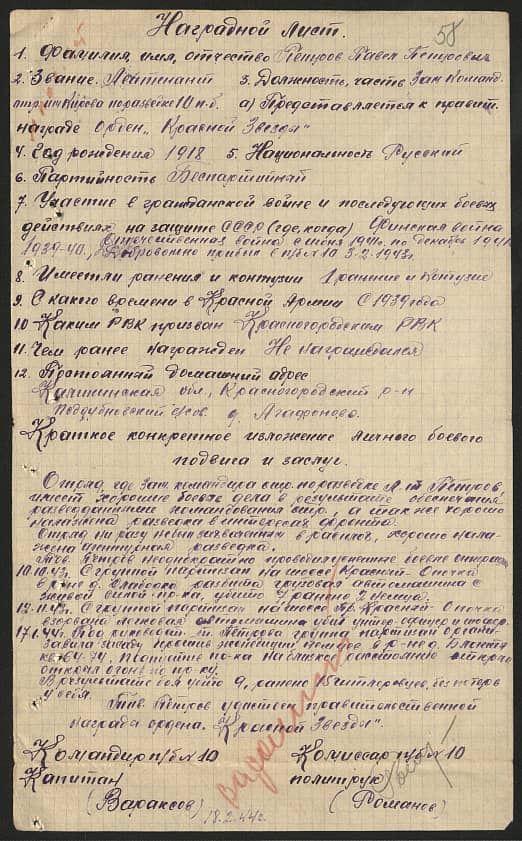 Наградной Лист.
58
1. Фамилия, имя, отчество Петров Павел Петрович
2. Звание Лейтенант 3. Должность, часть Зам. Команд.
отр. им Кирова по разведке 10 п.б. а) Представляется к правит.
награде Орден „Красной Звезды"
4. Год рождения 1918 5. Национальность Русский
6. Партийность Беспартийный
7. Участие в гражданской войне и последующих боевых
действиях на защите СССР (где, когда) Финская война
1939-40, Отечественная война с июня 1941 по декабрь 1941
Добровольно прибыл в п/бр 10 3.2.1943г.
8. Имеет ли ранения и контузии 1 ранение и контузию
9. С какого времени в Красной Армии С 1939 года
10 Каким РВК призван Красногородским РВК
11. Чем ранее награжден Не награждался
12. Постоянный домашний адрес
Калининская обл, Красногородский р-н
Поддубновский с/сов. д. Агафоново.
Краткое конкретное изложение личного боевого
подвига и заслуг.
Отряд, где зам. командира отр. по разведке л-т Петров,
имеет хорошие боевые дела в результате обеспечения
разведданными командования отр., а так же хорошо
налажена разведка в интересах фронта.
Отряд ни разу не был захвачен в расплох, хорошо нала-
жена агентурная разведка.
Тов. Петров неоднократно проводил успешные боевые операции
10.10.43 С группой партизан на шоссе Красный-Опочка
в р-не д. разбита грузовая автомашина с
живой силой пр-ка, убито 4 ранено 2 немца.
12.11.43г. С группой партизан на шоссе Красный-Опочка
взорвана легковая автомашина убит унтер-офицер и шофер.
17.1.44г. Под руководст. т. Петрова группа партизан органи-
зовала засаду против экспедиции немцев в р-не д.
кв. Подпустив пр-ка на близкое расстояние отряд
открыл огонь по пр-ку.
В результате боя убито 9, ранено 6 гитлеровцев, без потерь
у себя.
Тов. Петров удостоен правительственной
награда ордена „Красной Звезды".
Командир п/б № 10 Комиссар п/б № 10
Капитан политрук
(Вараксов) (Романов)
18.2.44г.